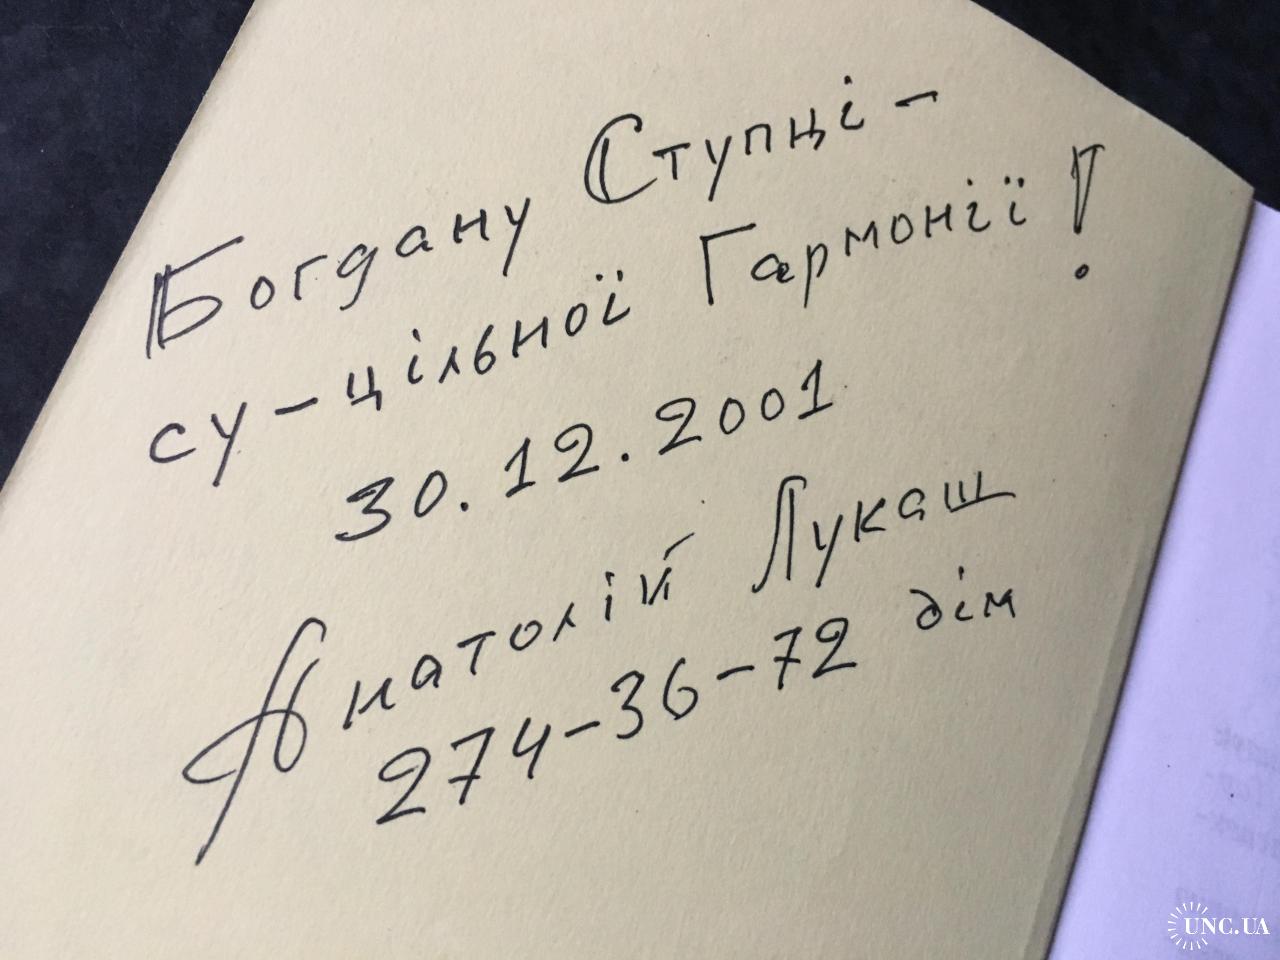 Богдану Ступці –
су-цільної Гармонії!
30.12.2001
Анатолій Лукаш
274-36-72 дім
UNC.UA